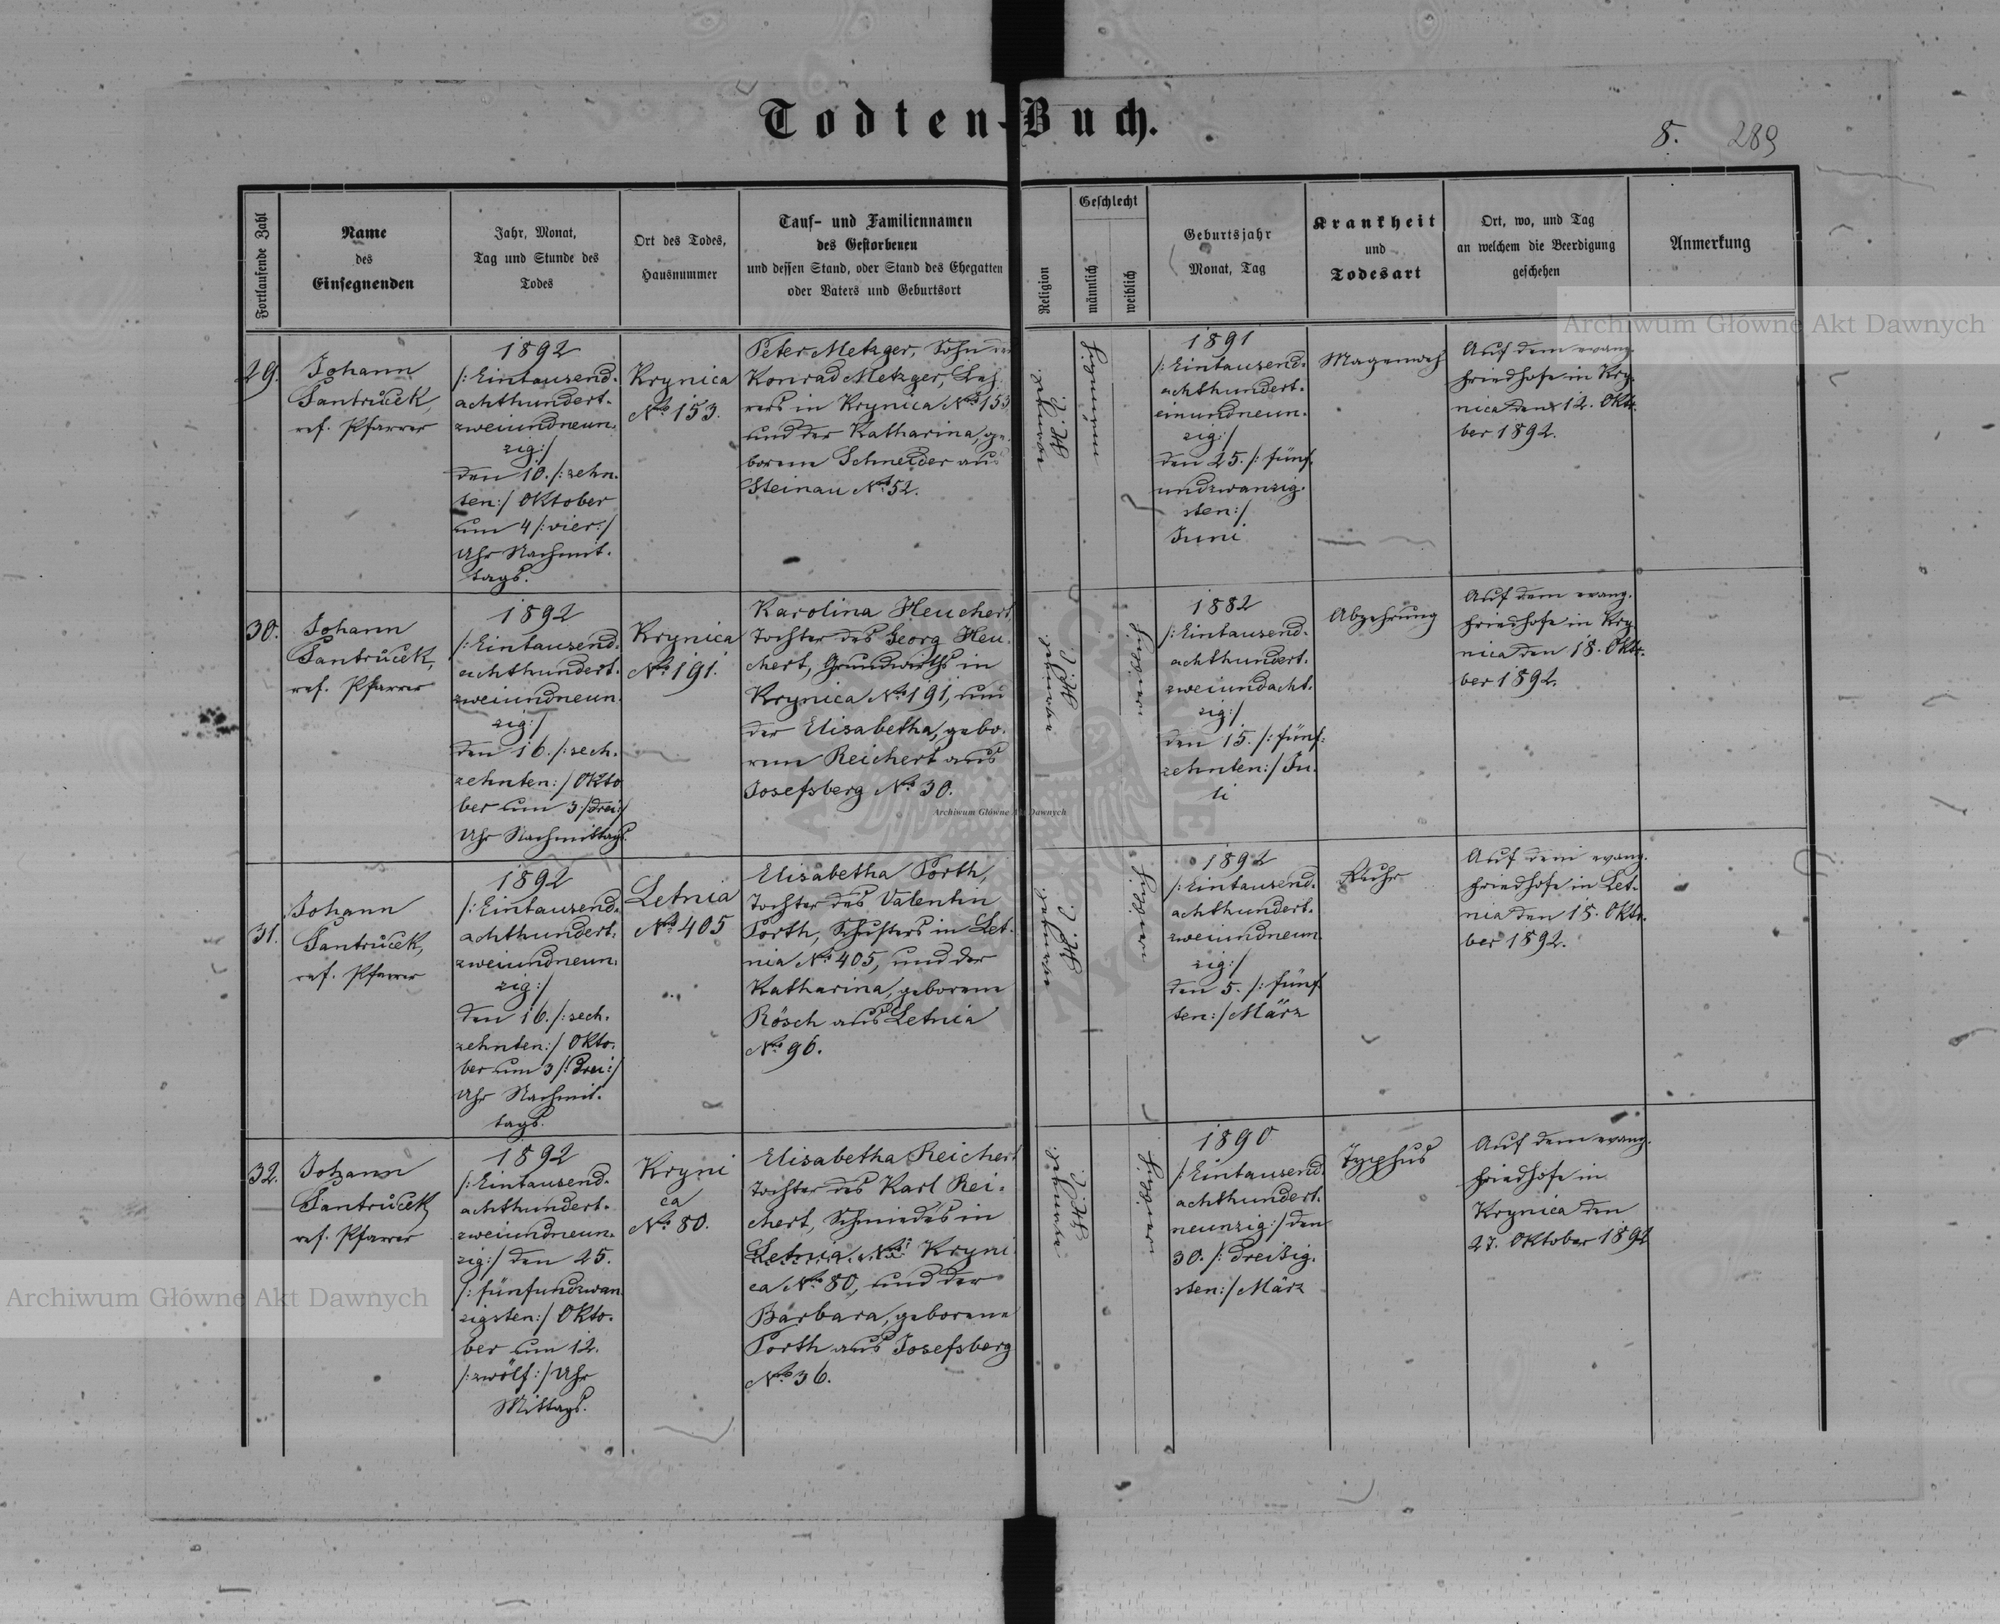 Todten-Buch.
8. 289
Fortlaufende Zahl
Name
des
Einsegnenden
Jahr, Monat,
Tag und Stunde des
Todes
Ort des Todes,
Hausnummer
Tauf- und Familiennamen
des Gestorbenen
und dessen Stand, oder Stand des Ehegatten
oder Vaters und Geburtsort
Religion
Geschlecht
männlich
weiblich
Geburtsjahr
Monat, Tag
Krankheit
und
Todesart
Ort, wo, und Tag
an welchem die Beerdigung
geschehen
Anmerkung
29.
Johann
Santrůček,
ref. Pfarrer
1892
/:Eintausend-
achthundert-
zweiundneun-
zig:/
den 10. /:zehn-
ten:/ Oktober
um 4 /:vier:/
Uhr Nachmit-
tags.
Krynica
No 153.
Peter Metzger, Sohn des
Konrad Metzger, Leh-
rers in Krynica No 153
und der Katharina, ge-
borene Schneider aus
Steinau No 52.
1891
/:Eintausend-
achthundert-
einundneun-
zig:/
den 25. /:fünf-
undzwanzig-
sten:/
Juni
Magenweh
Auf dem evang.
Friedhofe in Kry-
nica den 12. Okto-
ber 1892.
30.
Johann
Santrůček,
ref. Pfarrer
1892
/:Eintausend-
achthundert-
zweiundneun-
zig:/
den 16. /:sech-
zehnten:/ Okto-
ber um 3 /:drei:/
Uhr Nachmittags.
Krynica
No 191.
Karolina Heuchert,
Tochter des Georg Heu-
chert, Grundwirths in
Krynica No 191, und
der Elisabetha, gebo-
rene Reichert aus
Josefsberg No 30.
1882
/:Eintausend-
achthundert-
zweiundacht-
zig:/
den 15. /:fünf-
zehnten:/ Ju-
li
Abzehrung
Auf dem evang.
Friedhofe in Kry-
nica den 18. Okto-
ber 1892.
31.
Johann
Santrůček,
ref. Pfarrer
1892
/:Eintausend-
achthundert-
zweiundneun-
zig:/
den 16. /:sech-
zehnten:/ Okto-
ber um 3 /:drei:/
Uhr Nachmit-
tags.
Letnia
No 405
Elisabetha Porth,
Tochter des Valentin
Porth, Schusters in Let-
nia No 405, und der
Katharina, geborene
Rösch aus Letnia
No 96.
1892
/:Eintausend-
achthundert-
zweiundneun-
zig:/
den 5. /:fünf-
ten:/ März
Ruhr
Auf dem evang.
Friedhofe in Let-
nia den 18. Okto-
ber 1892.
32.
Johann
Santrůček,
ref. Pfarrer
1892
/:Eintausend-
achthundert-
zweiundneun-
zig:/ den 25.
/:fünfundzwan-
zigsten:/ Okto-
ber um 12.
/:zwölf:/ Uhr
Mittags.
Kryni
ca
No 80.
Elisabetha Reichert
Tochter des Karl Rei-
chert, Schmiedes in
Letnia No Kryni-
ca No 80, und der
Barbara, geborene
Porth aus Josefsberg
No 36.
1890
/:Eintausend
achthundert-
neunzig:/ den
30. /:dreißig-
sten:/ März
Typhus
Auf dem evang.
Friedhofe in
Krynica den
27. Oktober 1892
Archiwum Główne Akt Dawnych
Archiwum Główne Akt Dawnych
Archiwum Główne Akt Dawnych